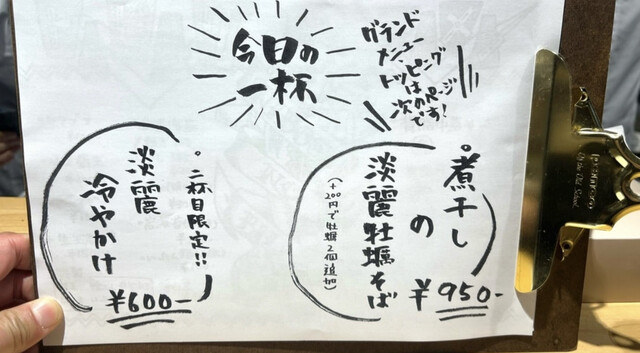 今日の
一杯
グランド
メニュー
トッピング
は
次のページ
です!
・煮干し
の
淡麗牡蠣そば
(+200円で牡蠣2個追加)
¥950-
・二杯目限定!!
淡麗
冷やかけ
¥600-